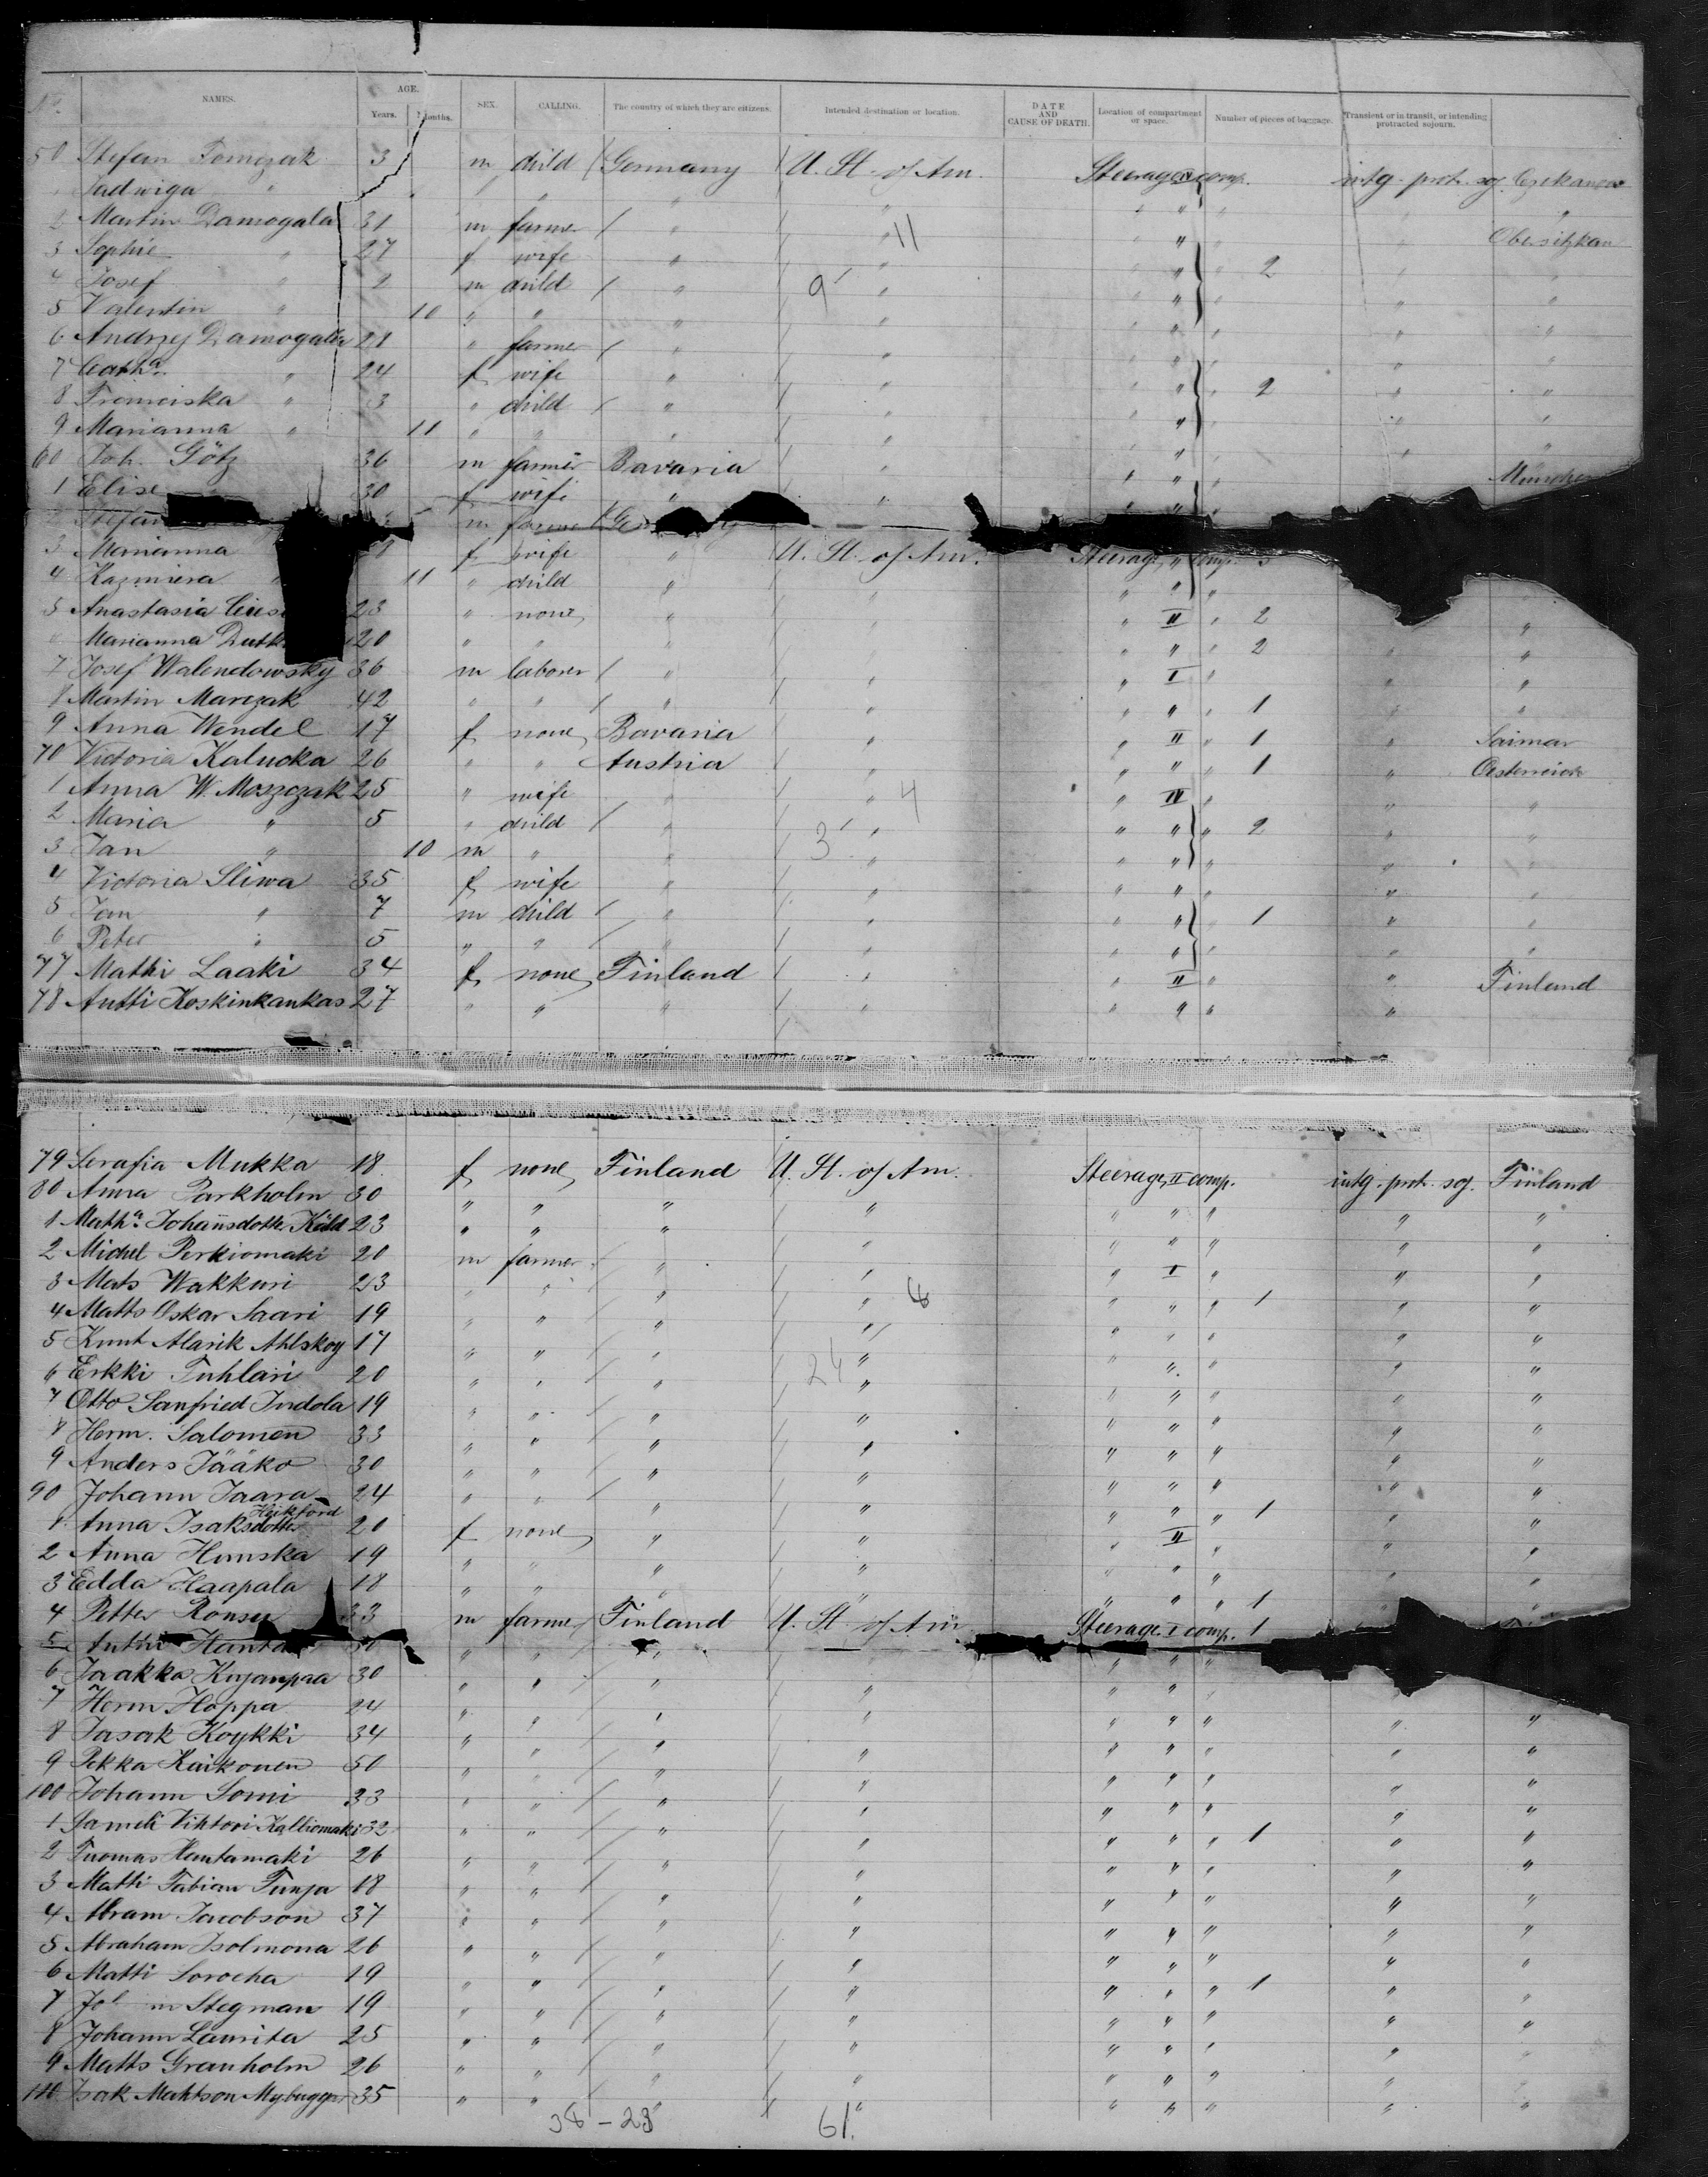 No. NAMES. AGE. Years. Months. SEX. CALLING. The country of which they are citizens. Intended destination or location. DATE AND CAUSE OF DEATH. Location of compartment or space. Number of pieces of baggage. Transient or in transit, or intending protracted sojourn.
50 Stefan Tomczak 3 m child Germany U. St. of Am. Steerage comp. intg. prot. soj.
Jadwiga " " " " " " " "
2 Martin Damogala 31 m farmer " " 11 " " " " Obersitzkau
3 Sophie " 27 f wife " " " " " 2 " "
4 Josef " 2 m child " 9 " " " " " "
5 Valentin " 10 " " " " " " " " "
6 Andrzej Damogala 28 " farmer " " " " " " "
7 Cath.a " 24 f wife " " " " " 2 " "
8 Franciska " 3 " child " " " " " " "
9 Marianna " 11 " " " " " " " " "
60 Joh. Götz 36 m farmer Bavaria " " " " " München
1 Elise 30 f wife " " " "
Stefan m farmer
3 Marianna f wife " U. St. of Am. Steerage " comp.
4 Kazmiera " 11 " child " " " " "
5 Anastasia 23 " none " " " II " 2 "
Marianna 20 " " " " " " " 2 " "
7 Josef Walendowsky 36 m laborer " " " I " " "
8 Martin Marczak 42 " " " " " " " 1 " "
9 Anna Wendel 17 f none Bavaria " " II " 1 " Saimar
70 Victoria Kalucka 26 " " Austria " " " " 1 " Oesterreich
1 Anna W. Moszczak 25 " wife " " 4 " IV " " "
2 Maria " 5 " child " 3 " " " " 2 " "
3 Jan " 10 m " " " " " " " "
4 Victoria Sliwa 35 f wife " " " " " " "
5 Jan " 7 m child " " " " " 1 " "
6 Peter " 5 " " " " " " " " "
77 Mathi Laaki 34 f none Finland " " II " " Finland
78 Antti Koskinkankas 27 " " " " " " " "
79 Serafia Mukka 18 f none Finland U. St. of Am. Steerage, II comp. intg. prot. soj. Finland
80 Anna Parkholm 30 " " " " " " " " "
1 Math.a Johannsdotter Käld 23 " " " " " " " " "
2 Michel Perkiomaki 20 m farmer " " " I " " "
3 Mats Wakkuri 23 " " " " 8 " " " 1 " "
4 Matts Oskar Saari 19 " " " " " " " " "
5 Knut Alarik Ahlskog 17 " " " 24 " " " " " "
6 Erkki Tuhlari 20 " " " " " " " " "
7 Otto Sanfried Indola 19 " " " " " " " " "
8 Herm. Salomen 33 " " " " " " " " "
9 Anders Jääko 30 " " " " " " " " "
90 Johann Jaara 24 " " " " " " " 1 " "
1 Anna Isaksdotter 20 f none " " " II " " "
2 Anna Hunska 19 " " " " " " " " "
3 Edda Haapala 18 " " " " " " " 1 " "
4 Petter Ronsu 33 m farmer Finland U. St. of Am. Steerage I comp. 1
5 30 " " " " " " "
6 Jaakko Kujanpaa 30 " " " " " " " "
7 Herm Hoppa 24 " " " " " " " " "
8 Jasak Koykki 34 " " " " " " " " "
9 Pekka Kaikonen 50 " " " " " " " " "
100 Johann Somi 23 " " " " " " " " "
1 Sameli Vihtori Kalliomaki 32 " " " " " " " 1 " "
2 Tuomas Hautamaki 26 " " " " " " " " "
3 Matti Fabian Tunja 18 " " " " " " " " "
4 Abram Jacobson 37 " " " " " " " " "
5 Abraham Isolmona 26 " " " " " " " " "
6 Matti Sorocha 19 " " " " " " " 1 " "
7 Stegman 19 " " " " " " " " "
8 Johann Laurita 25 " " " " " " " " "
9 Matts Granholm 26 " " " " " " " " "
110 Isak Mahtson 35 " " " " " " " " "
38 - 23 61.